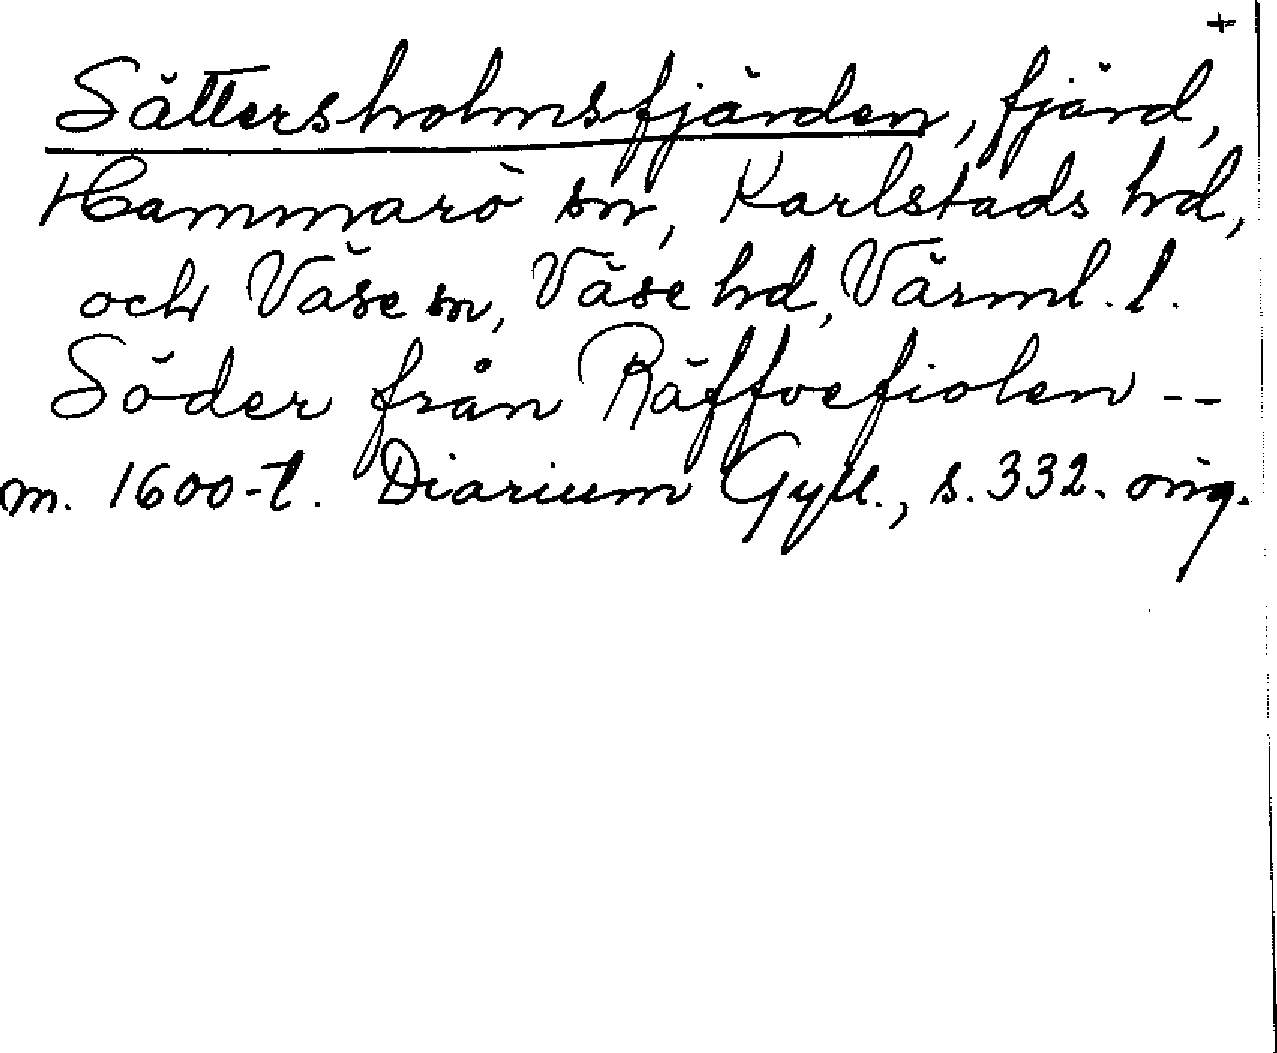 +
Sättersholmsfjärden, fjärd,
Hammarö sn, Karlstads hd,
och Väse sn, Väse hd, Värml. l.
Söder från Räffvefiolen --
m. 1600-t. Diarium Gyll., s. 332. orig.